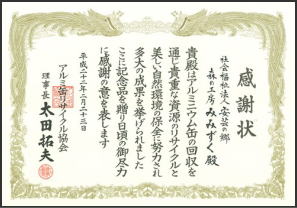 感謝状
社会福祉法人 安芸の郷
森の工房 みみずく殿
貴殿はアルミニウム缶の回収を
通じ貴重な資源のリサイクルと
美しい自然環境の保全に努力され
多大の成果を挙げられました
ここに記念品を贈り日頃の御尽力
に感謝の意を表します
平成二十二年二月二十三日
アルミ缶リサイクル協会
理事長 太田拓夫